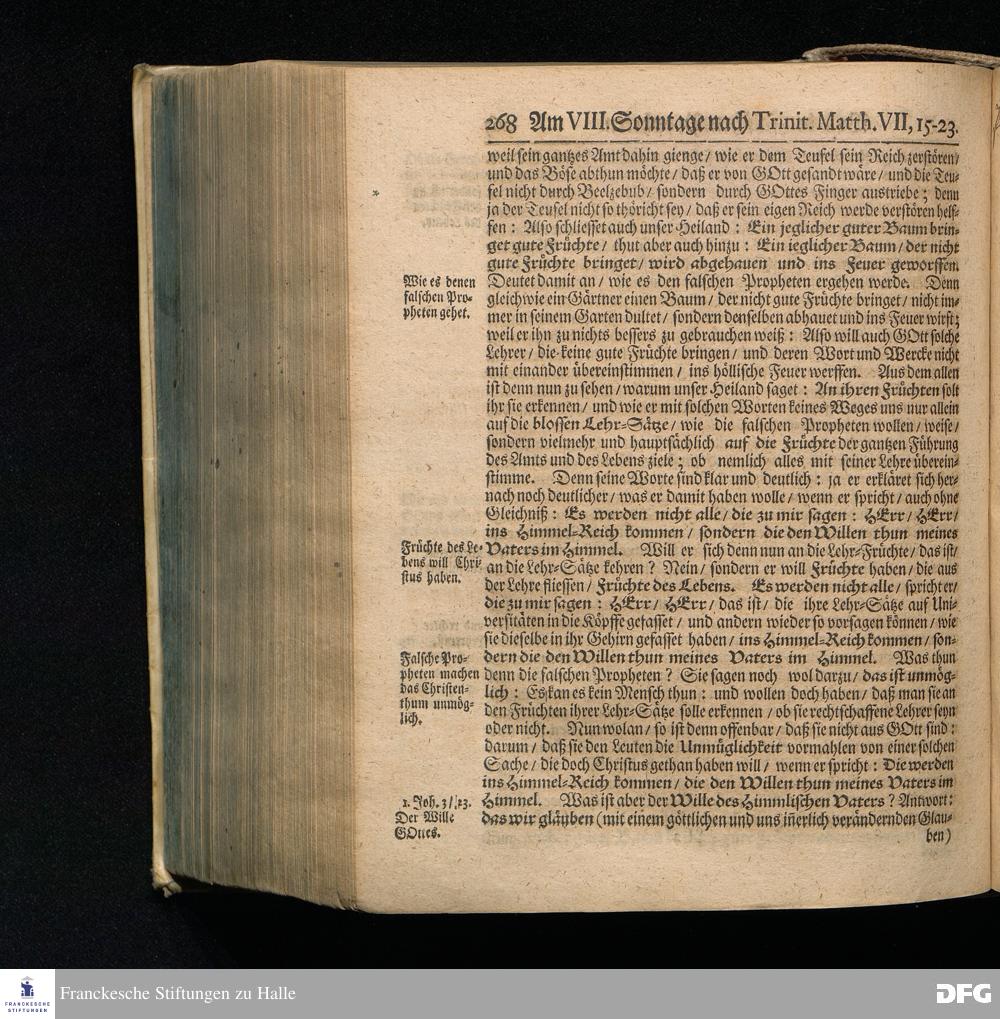 268 Am VIII. Sonntage nach Trinit. Matth. VII, 15-23.
weil sein gantzes Amt dahin gienge / wie er dem Teufel sein Reich zerstören /
und das Böse abthun möchte / daß er von GOtt gesandt wäre / und die Teu-
fel nicht durch Beelzebub / sondern durch GOttes Finger austriebe ; denn
ja der Teufel nicht so thöricht sey / daß er sein eigen Reich werde verstören helf-
fen : Also schliesset auch unser Heiland : Ein jeglicher guter Baum brin-
get gute Früchte / thut aber auch hinzu : Ein ieglicher Baum / der nicht
gute Früchte bringet / wird abgehauen und ins Feuer geworffen.
Wie es denen
falschen Pro-
pheten gehet.
Deutet damit an / wie es den falschen Propheten ergehen werde. Denn
gleichwie ein Gärtner einen Baum / der nicht gute Früchte bringet / nicht im-
mer in seinem Garten dultet / sondern denselben abhauet und ins Feuer wirft ;
weil er ihn zu nichts bessers zu gebrauchen weiß : Also will auch GOtt solche
Lehrer / die keine gute Früchte bringen / und deren Wort und Wercke nicht
mit einander übereinstimmen / ins höllische Feuer werffen. Aus dem allen
ist denn nun zu sehen / warum unser Heiland saget : An ihren Früchten solt
ihr sie erkennen / und wie er mit solchen Worten keines Weges uns nur allein
auf die blossen Lehr-Sätze / wie die falschen Propheten wollen / weise /
sondern vielmehr und hauptsächlich auf die Früchte der gantzen Führung
des Amts und des Lebens ziele ; ob nemlich alles mit seiner Lehre überein-
stimme. Denn seine Worte sind klar und deutlich : ja er erkläret sich her-
nach noch deutlicher / was er damit haben wolle / wenn er spricht / auch ohne
Gleichniß : Es werden nicht alle / die zu mir sagen : HErr / HErr /
ins Himmel-Reich kommen / sondern die den Willen thun meines
Früchte des Le-
bens will Chri-
stus haben.
Vaters im Himmel. Will er sich denn nun an die Lehr-Früchte / das ist /
an die Lehr-Sätze kehren ? Nein / sondern er will Früchte haben / die aus
der Lehre fliessen / Früchte des Lebens. Es werden nicht alle / spricht er /
die zu mir sagen : HErr / HErr / das ist / die ihre Lehr-Sätze auf Uni-
versitäten in die Köpffe gefasset / und andern wieder so vorsagen können / wie
sie dieselbe in ihr Gehirn gefasset haben / ins Himmel-Reich kommen / son-
Falsche Pro-
pheten machen
das Christen-
thum unmög-
lich.
dern die den Willen thun meines Vaters im Himmel. Was thun
denn die falschen Propheten ? Sie sagen noch wol darzu / das ist unmög-
lich : Es kan es kein Mensch thun : und wollen doch haben / daß man sie an
den Früchten ihrer Lehr-Sätze solle erkennen / ob sie rechtschaffene Lehrer seyn
oder nicht. Nun wolan / so ist denn offenbar / daß sie nicht aus GOtt sind :
darum / daß sie den Leuten die Unmüglichkeit vormahlen von einer solchen
Sache / die doch Christus gethan haben will / wenn er spricht : Die werden
ins Himmel-Reich kommen / die den Willen thun meines Vaters im
1. Joh. 3 / 23.
Der Wille
GOttes.
Himmel. Was ist aber der Wille des Himmlischen Vaters ? Antwort :
das wir gläuben (mit einem göttlichen und uns iñerlich verändernden Glau-
ben)
FRANCKESCHE
STIFTUNGEN
Franckesche Stiftungen zu Halle
DFG